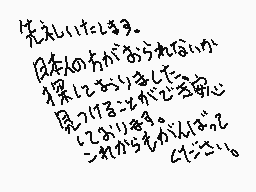 失礼いたします。
日本人の方がおられないか
探しておりました。
見つけることができ安心
しております。
これからもがんばって
ください。